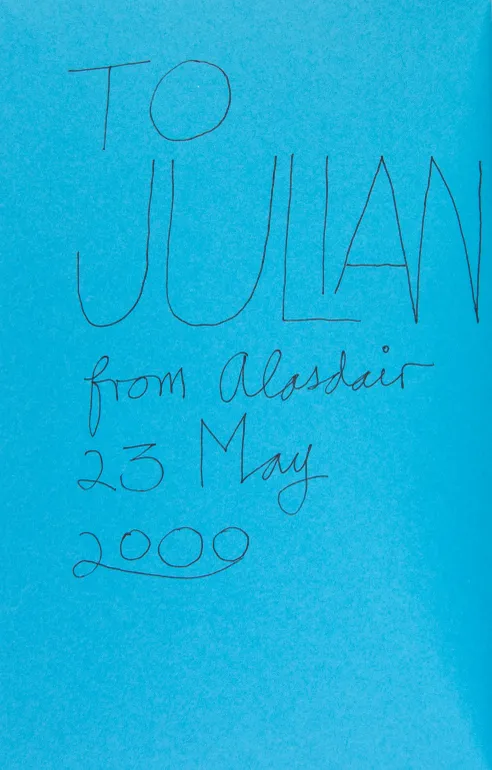 TO
JULIAN
from Alasdair
23 May
2000